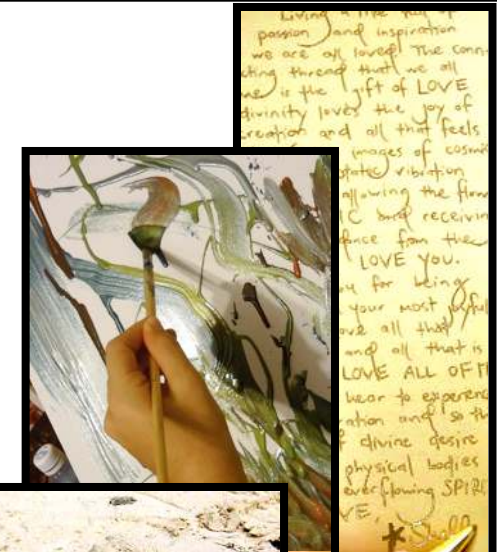 Living a life full of
passion and inspiration
we are all loved The conn
cting thread that we all
is the gift of LOVE
divinity loves the joy of
creation and all that feels
images of cosmi
static vibration
allowing the flow
IC and receivin
dance from the
LOVE YOU.
for being
your most joyful
ove all that
and all that is
LOVE ALL OF
hear to experienc
ration and so th
divine desire
physical bodies
overflowing SPIRI
VE,